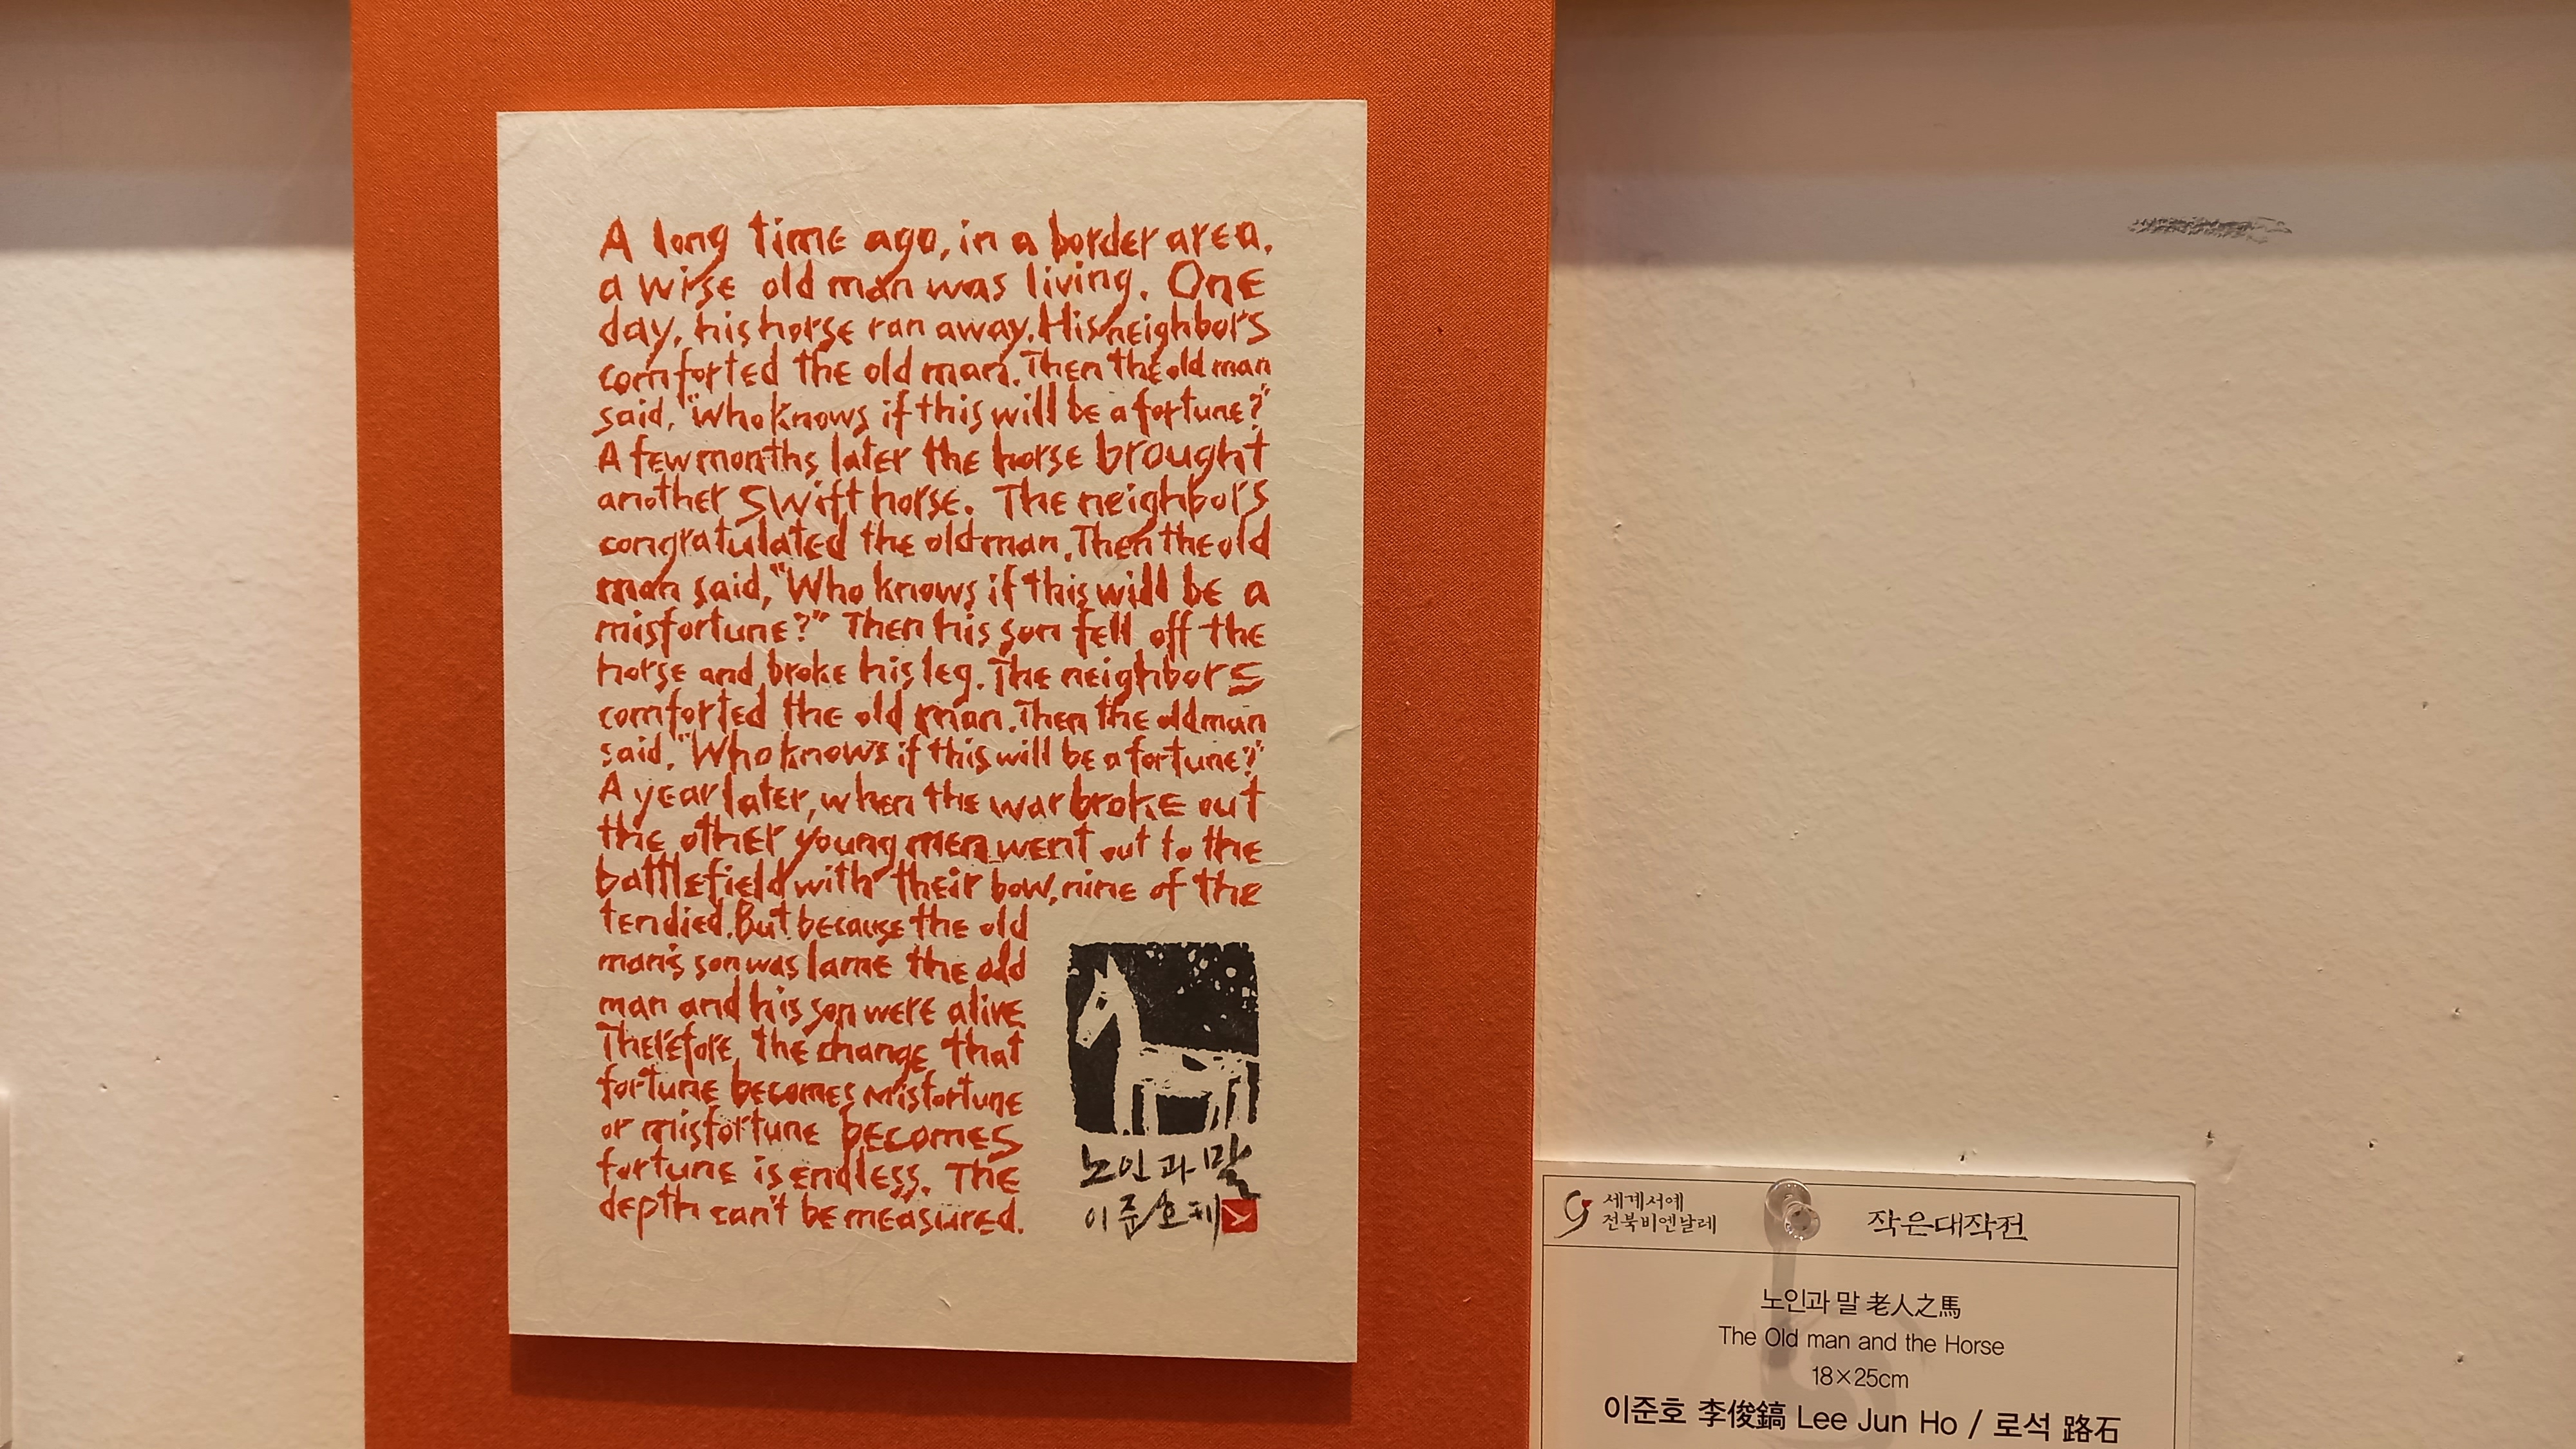 A long time ago, in a border area,
a wise old man was living. One
day, his horse ran away. His neighbors
comforted the old man. Then the old man
said, "Who knows if this will be a fortune?"
A few months later the horse brought
another swift horse. The neighbors
congratulated the old man. Then the old
man said, "Who knows if this will be a
misfortune?" Then his son fell off the
horse and broke his leg. The neighbors
comforted the old man. Then the old man
said, "Who knows if this will be a fortune?"
A year later, when the war broke out
the other young men went out to the
battlefield with their bow, nine of the
ten died. But because the old
man's son was lame the old
man and his son were alive.
Therefore, the change that
fortune becomes misfortune
or misfortune becomes
fortune is endless. The
depth can't be measured.
노인과 말
이준호
세계서예
전북비엔날레
작은대작전
노인과 말 老人之馬
The Old man and the Horse
18×25cm
이준호 李俊鎬 Lee Jun Ho / 로석 路石